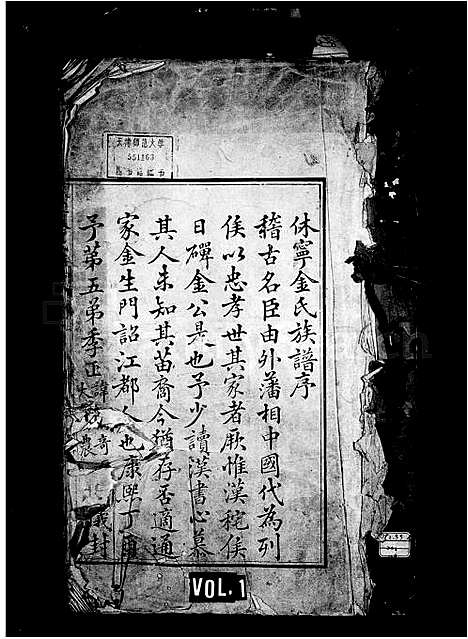 休寧金氏族譜序
稽古名臣由外藩相中國代為列
侯以忠孝世其家者厥惟漢秺侯
日磾金公是也予少讀漢書心慕
其人未知其苗裔今猶存否適通
家金生門詔江都人也康熙丁酉
予弟五弟季正諱奇
大 農 封
天津師范大學
551163
VOL.1